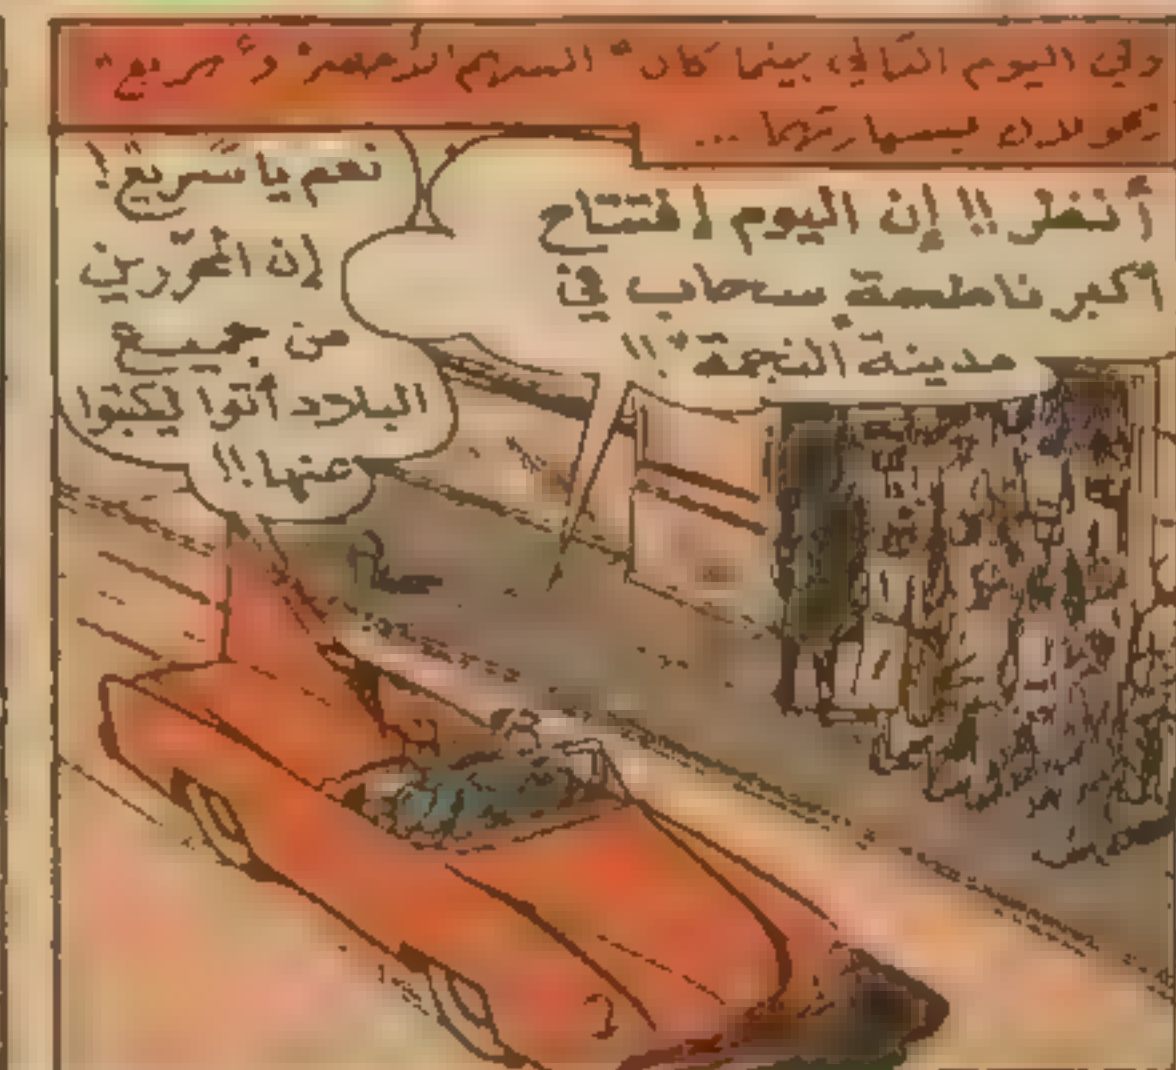 وفي اليوم التالي بينما كان "السهم الأخضر" و"سريع"
يتجولان بسيارتهما ...
أنظر !! إن اليوم إفتتاح
أكبر ناطحة سحاب في
مدينة النجمة" !!
نعم يا سريع !
إن المحررين
من جميع
البلاد أتوا ليكتبوا
عنها !!